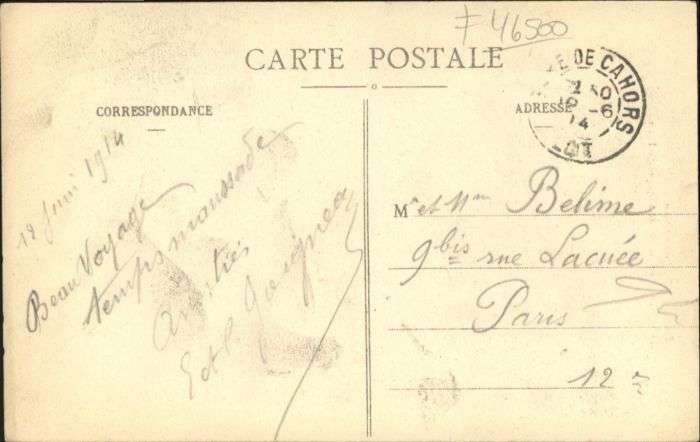 F 46500
CARTE POSTALE
CORRESPONDANCE
ADRESSE
DE CAHORS
12 -6
14
LOT
12 Juin 1914
Beau Voyage
temps maussade
Amitiés
E et L
Mr et Mm Belime
9 bis rue Lacuée
Paris
12e